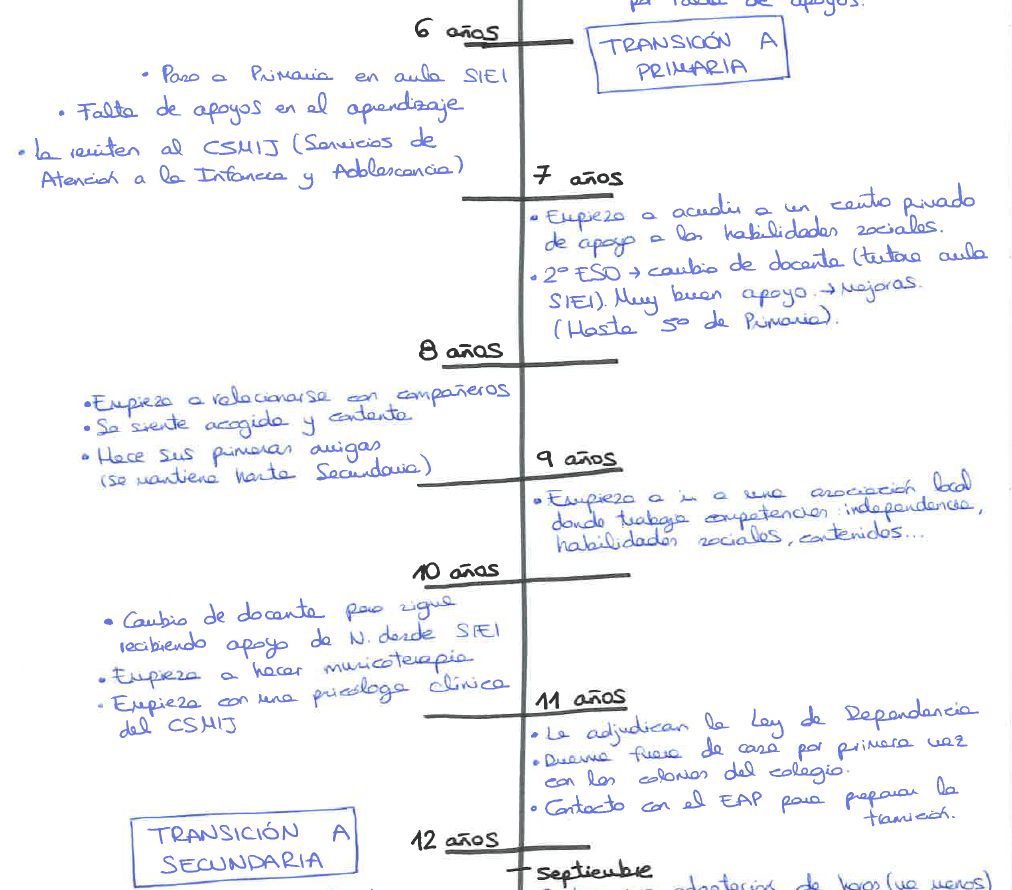 por falta de apoyos.
6 años
TRANSICIÓN A
PRIMARIA
• Paso a Primaria en aula SIEI
• Falta de apoyos en el aprendizaje
• La remiten al CSMIJ (Servicios de
Atención a la Infancia y Adolescencia)
7 años
• Empieza a acudir a un centro privado
de apoyo a las habilidades sociales.
• 2º ESO → cambio de docente (tutora aula
SIEI). Muy buen apoyo. → Mejoras.
(Hasta 5º de Primaria).
8 años
• Empieza a relacionarse con compañeros
• Se siente acogida y contenta
• Hace sus primeras amigas
(se mantiene hasta Secundaria)
9 años
• Empieza a ir a una asociación local
donde trabaja competencias: independencia,
habilidades sociales, contenidos...
10 años
• Cambio de docente pero sigue
recibiendo apoyo de N. desde SIEI
• Empieza a hacer musicoterapia
• Empieza con una psicóloga clínica
del CSMIJ
11 años
• Le adjudican la Ley de Dependencia
• Duerme fuera de casa por primera vez
con las colonias del colegio.
• Contacto con el EAP para preparar la
transición.
TRANSICIÓN A
SECUNDARIA
12 años
septiembre
adaptación de horas (va menos)